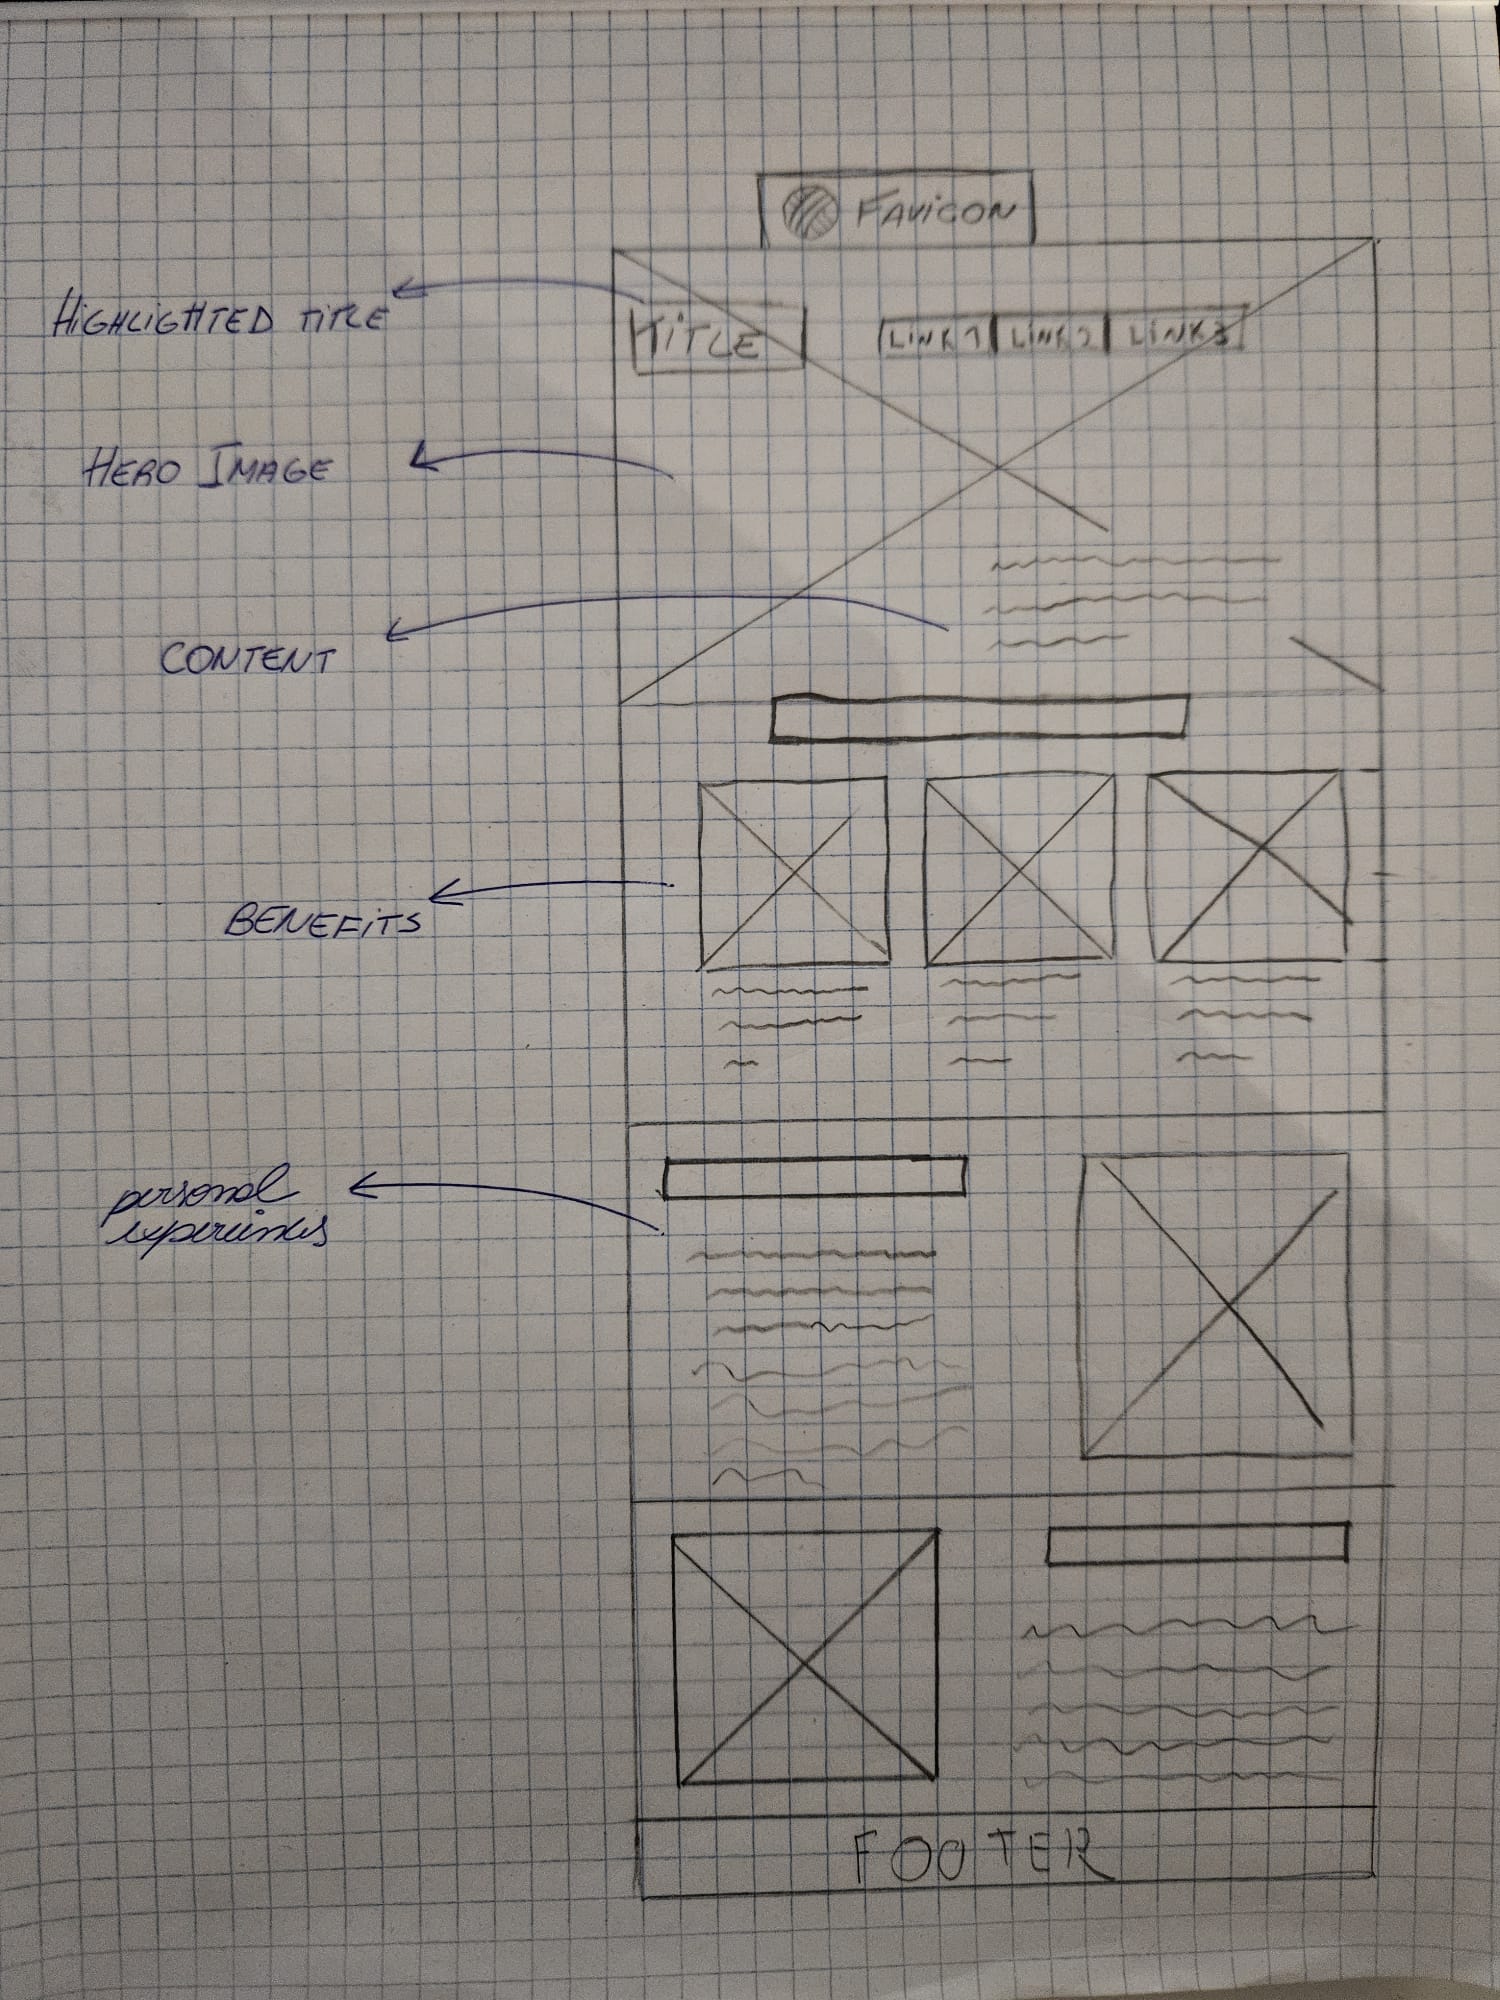 FAViCON
HiGHLiGHTED TiTLE
TiTLE
LiNK 1
LiNK 2
LiNK 3
HERO IMAGE
CONTENT
BENEFiTS
personal
FOOTER